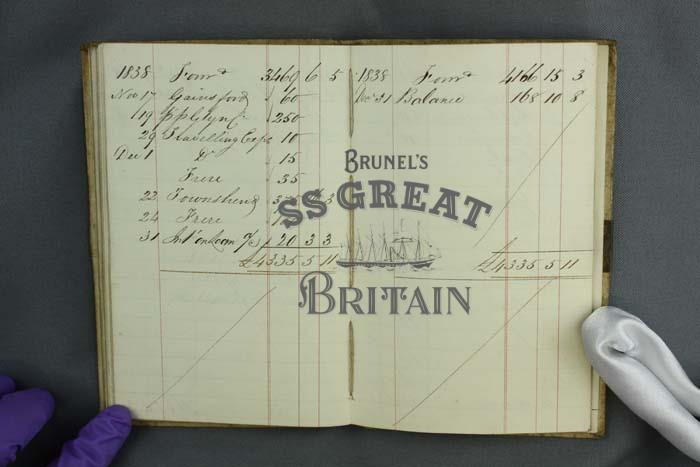 1838 Forwd 3469 6 5
Nov 17 Gainsford 60
19 250
29 Travelling Exps 10
Dec 1 Do 15
Frere 35
22 Townshend 3
24 Frere
31 20 3 3
£4335 5 11
1838 Forwd 4166 15 3
Dec 31 Balance 168 10 8
£4335 5 11
BRUNEL'S
SS GREAT
BRITAIN